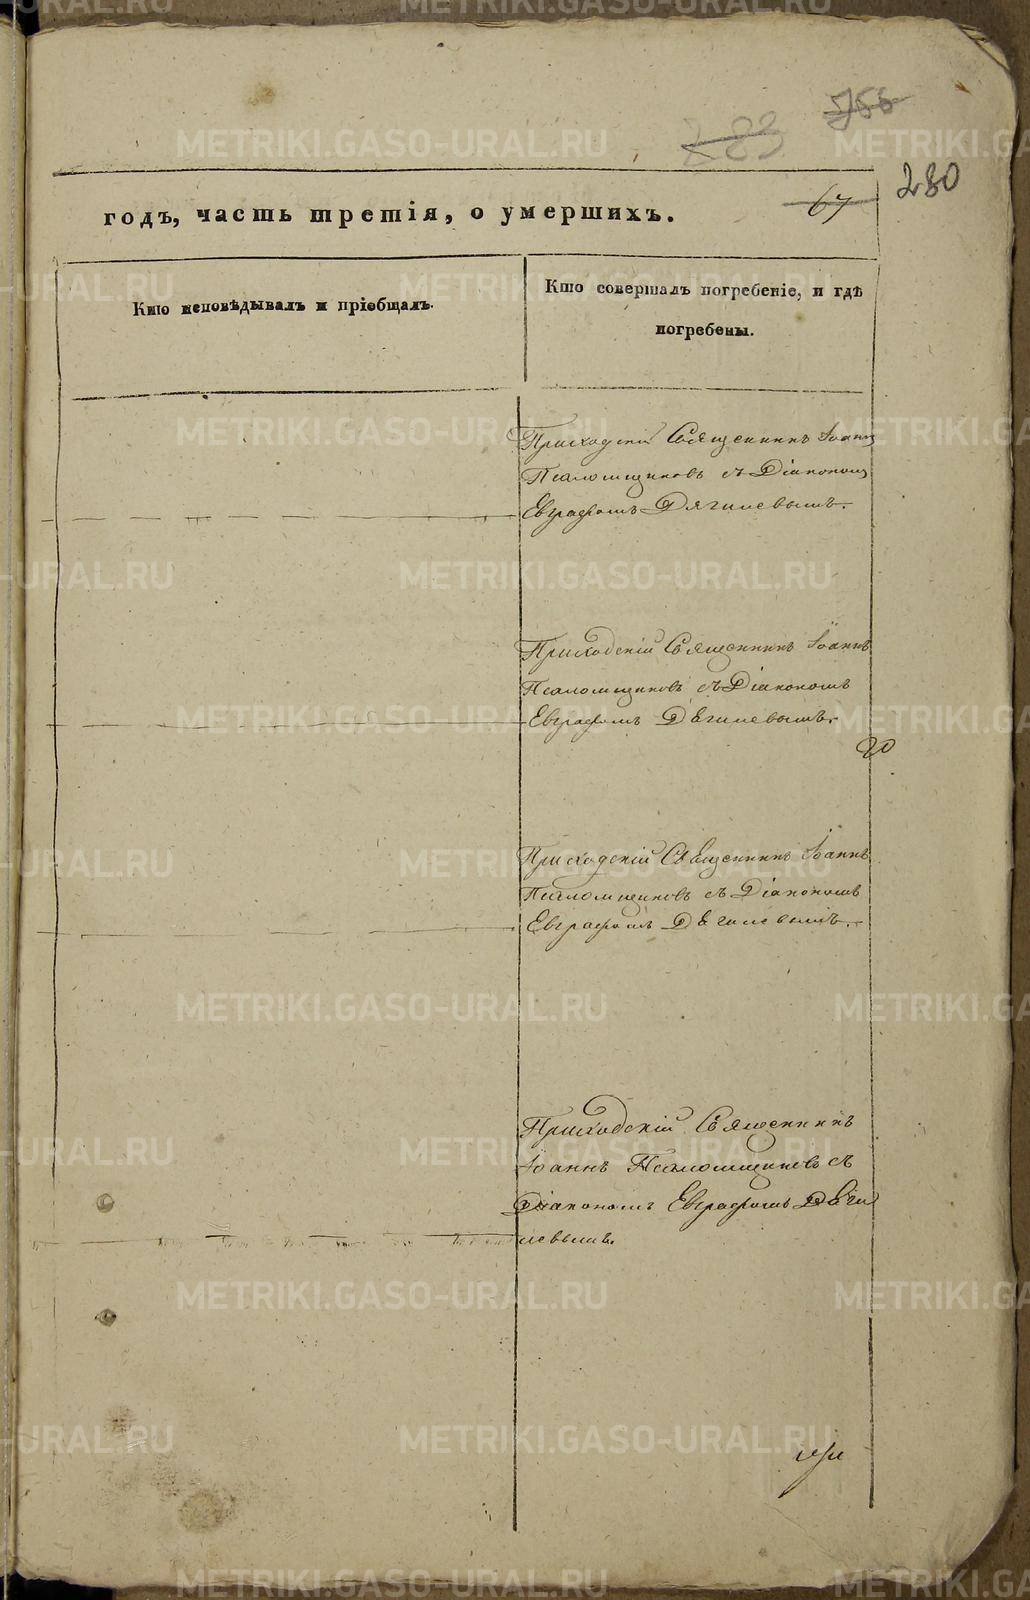 283
755
280
годъ, часть третія, о умершихъ.
67
Кто исповѣдывалъ и пріобщалъ.
Кто совершалъ погребеніе, и гдѣ
погребены.
Приходскій Священникъ Іоаннъ
Псаломщиковъ съ Діакономъ
Евграфомъ Дягилевымъ.
Приходскій Священникъ Іоаннъ
Псаломщиковъ съ Діакономъ
Евграфомъ Дягилевымъ.
20
Приходскій Священникъ Іоаннъ
Псаломщиковъ съ Діакономъ
Евграфомъ Дягилевымъ.
Приходскій Священникъ
Іоаннъ Псаломщиковъ съ
Діакономъ Евграфомъ Дяги
левымъ.
METRIKI.GASO-URAL.RU